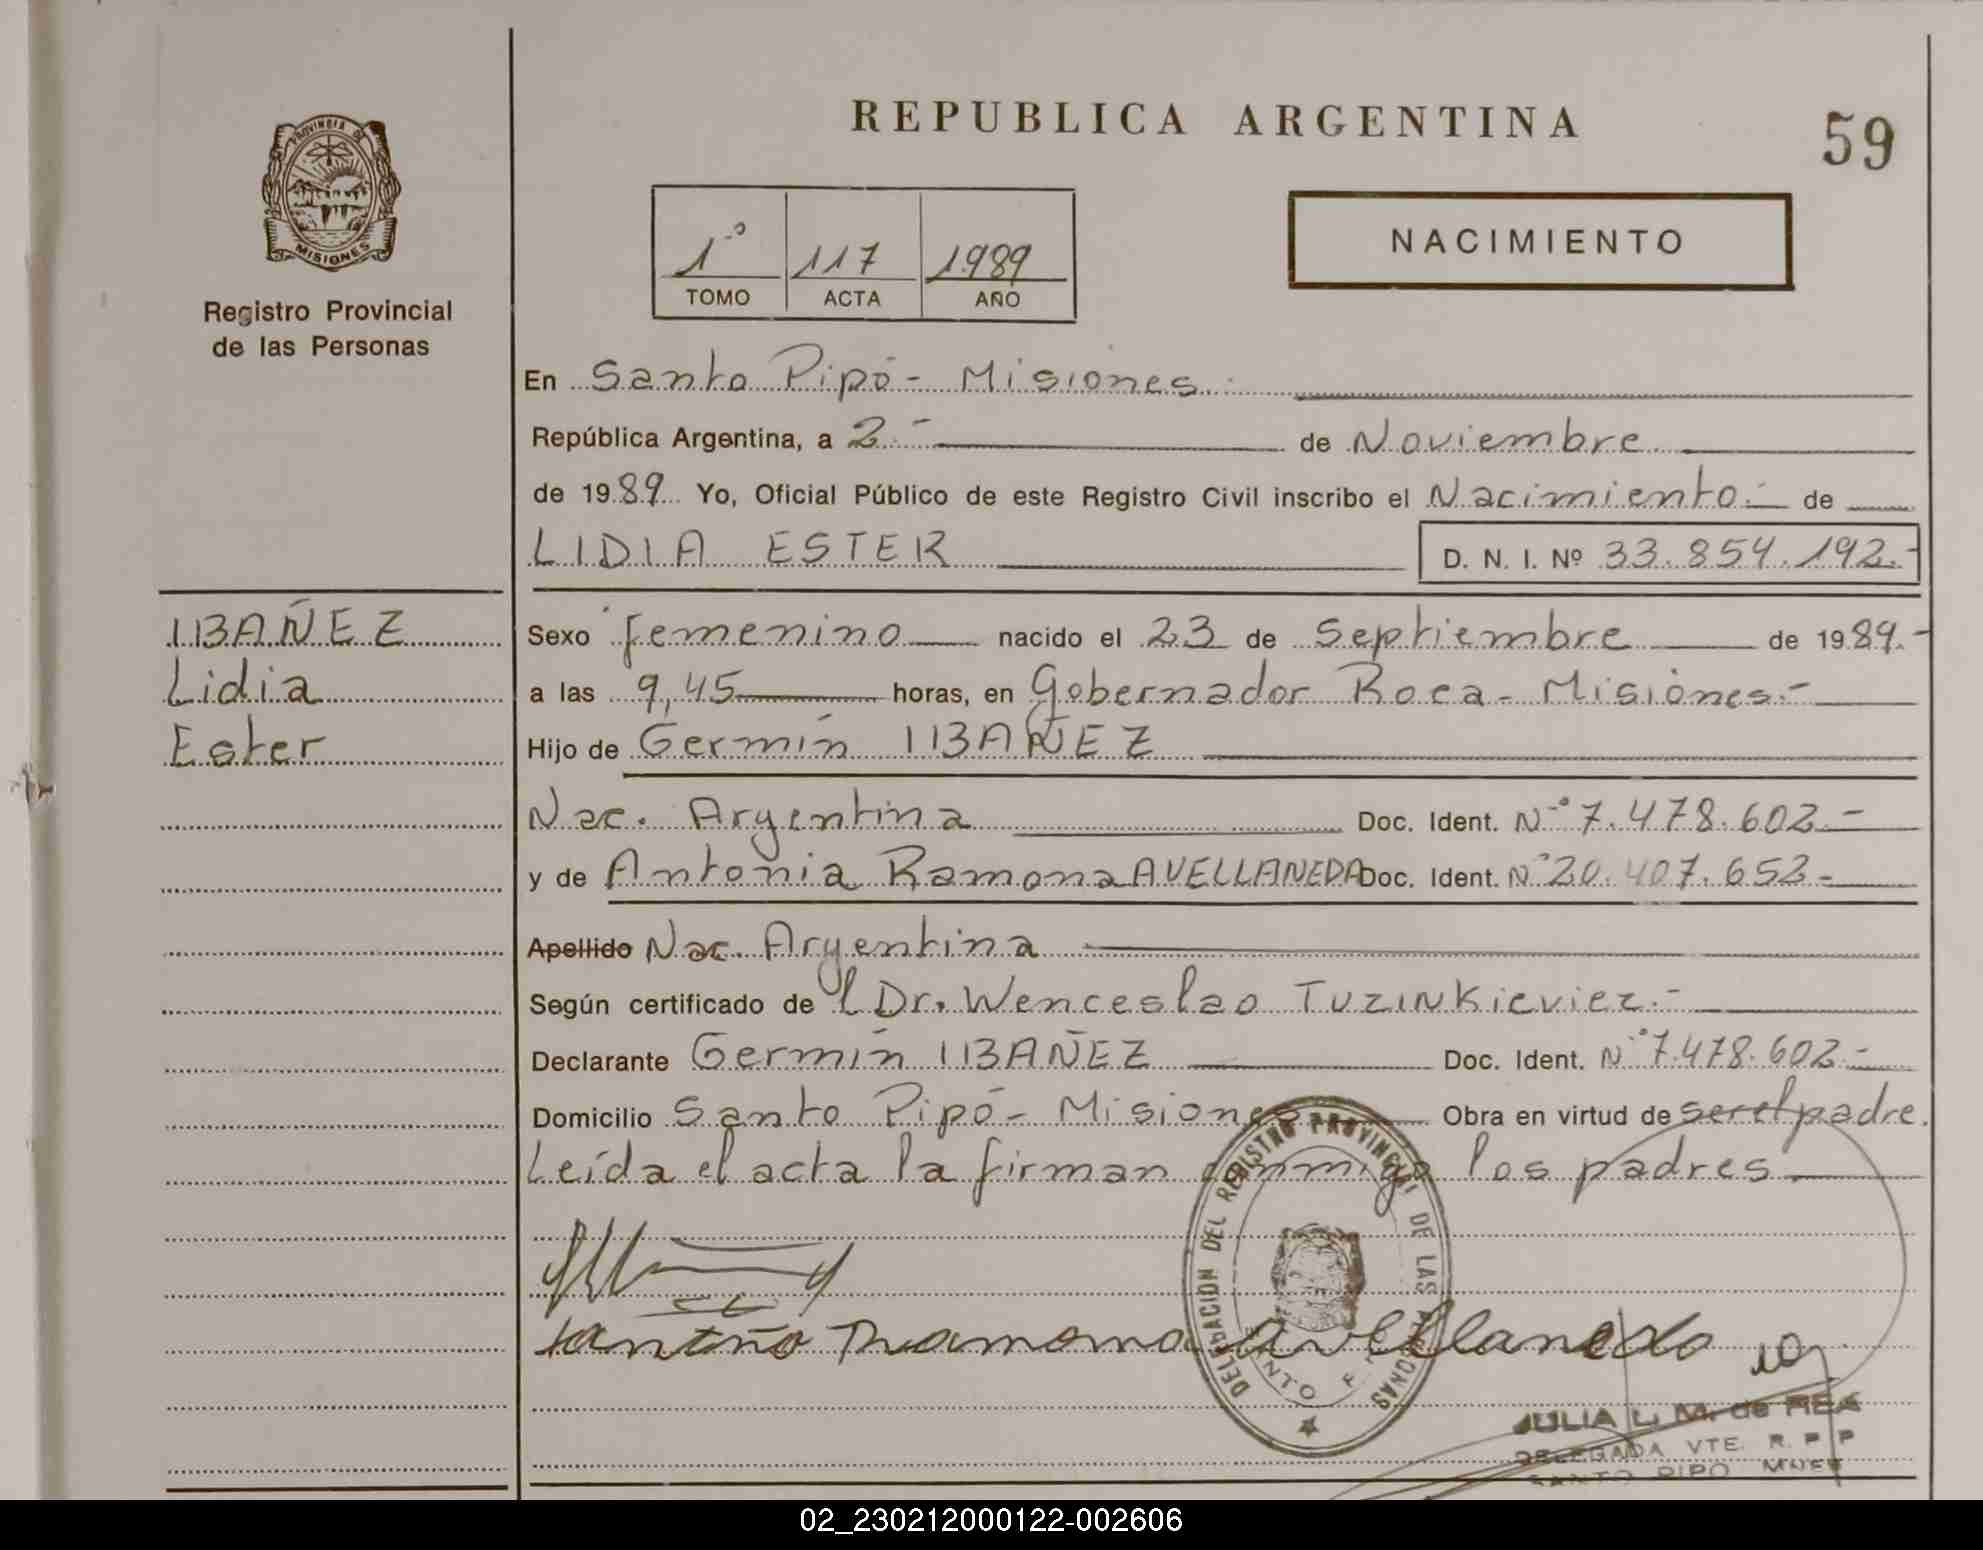 REPUBLICA ARGENTINA
59
PROVINCIA DE
MISIONES
Registro Provincial
de las Personas
1º 117 1989
TOMO ACTA AÑO
NACIMIENTO
En Santo Pipó - Misiones.
República Argentina, a 2.- de Noviembre
de 1989. Yo, Oficial Público de este Registro Civil inscribo el Nacimiento.- de
LIDIA ESTER D. N. I. Nº 33.854.192.-
IBAÑEZ
Lidia
Ester
Sexo femenino nacido el 23 de Septiembre de 1989.-
a las 9,45 horas, en Gobernador Roca - Misiones.-
Hijo de Germín IBAÑEZ
Nac. Argentina Doc. Ident. Nº 7.478.602.-
y de Antonia Ramona AVELLANEDA Doc. Ident. Nº 20.407.652-
Apellido Nac. Argentina
Según certificado del Dr. Wenceslao TUZINKieviez.-
Declarante Germín IBAÑEZ Doc. Ident. Nº 7.478.602.-
Domicilio Santo Pipó - Misiones Obra en virtud de ser el padre.
Leída el acta la firman conmigo los padres
DELEGACION DEL REGISTRO PROVINCIAL DE LAS PERSONAS
Ramona Avellaneda
JULIA L. M. de REA
DELEGADA VTE. R. P. P
SANTO PIPO MNES
02_230212000122-002606